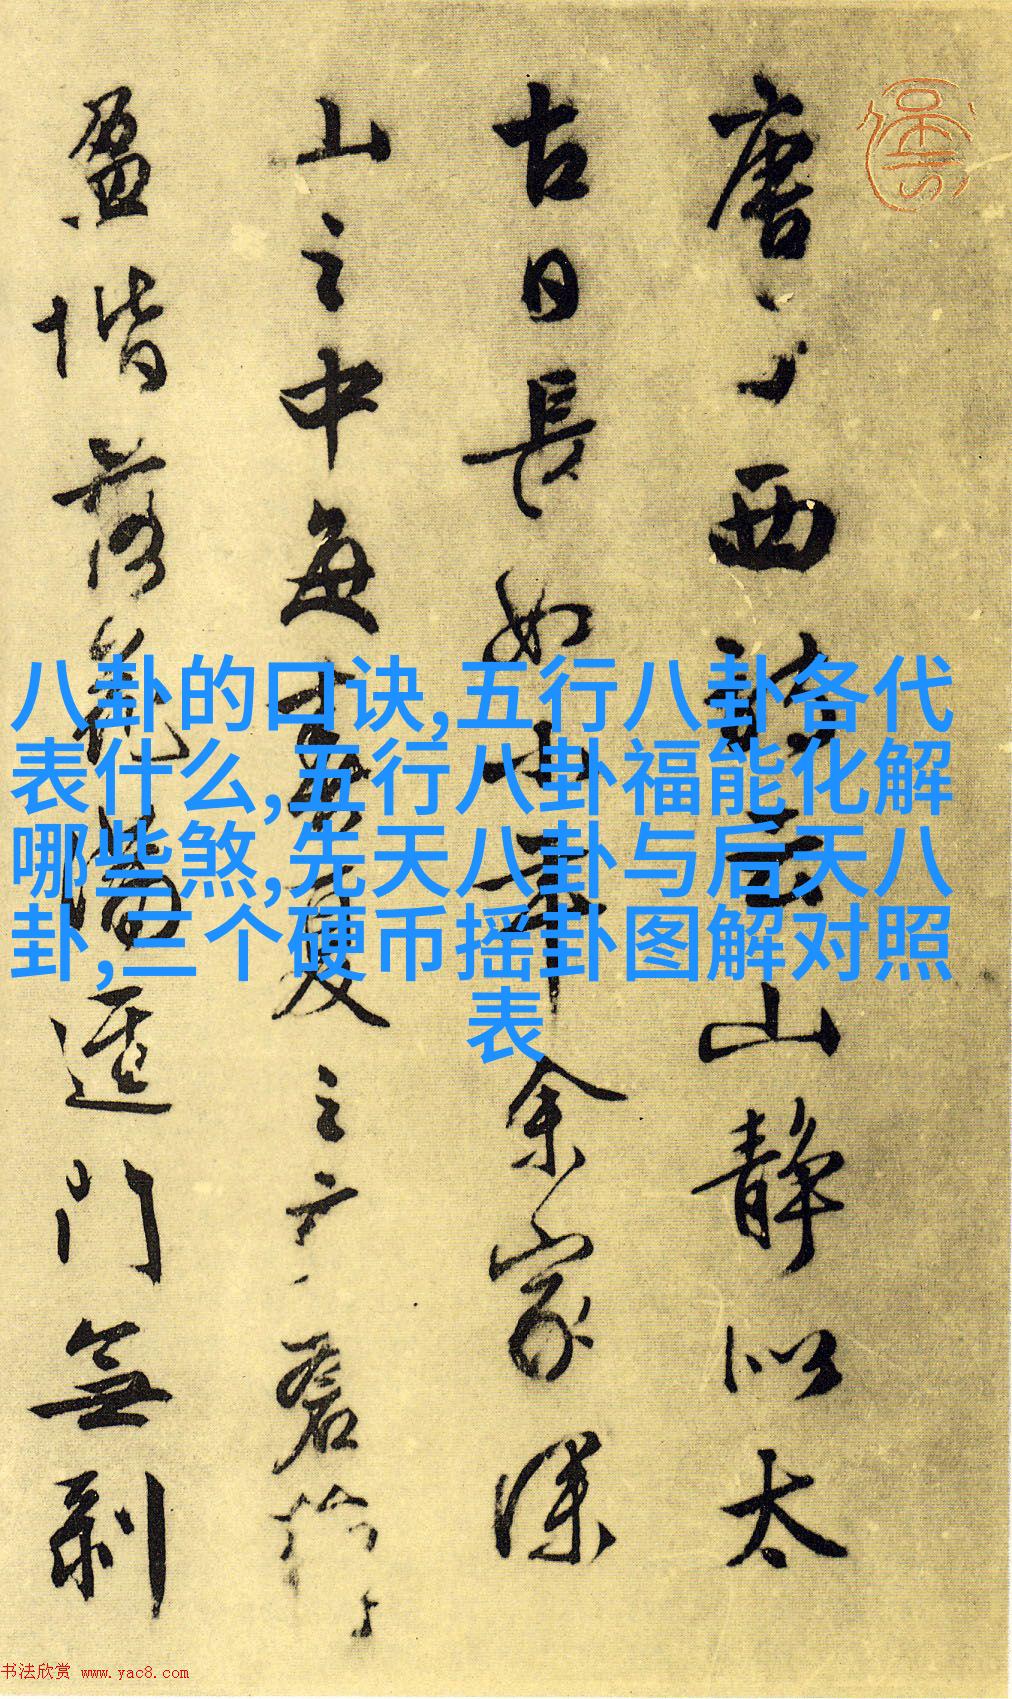 唐子西詩云山静似太
古日長如小年余家深
山之中每春夏之交蒼蘚
盈堦落花滿逕門無剥
八卦的口诀,五行八卦各代
表什么,五行八卦福能化解
哪些煞,先天八卦与后天八
卦,三个硬币摇卦图解对照
表
书法欣赏 www.yac8.com